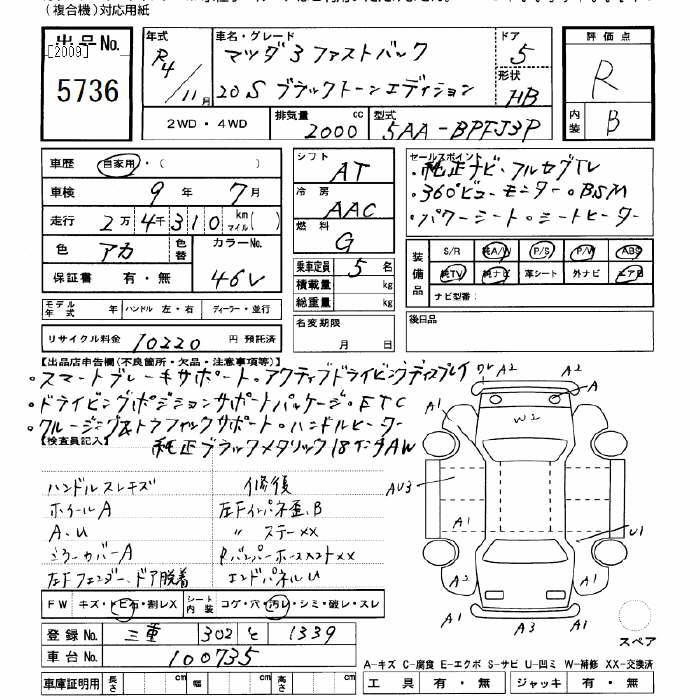 （複合機）対応用紙
出品No.
[2009]
5736
年式
R4/11月
車名・グレード
マツダ3 ファストバック
20S ブラックトーンエディション
ドア
5
形状
HB
評価点
R
内装
B
2WD・4WD
排気量
2000 cc
型式
5AA-BPFJ3P
車歴 自家用・( )
車検 9年 7月
走行 2万4千310 km マイル( )
色 アカ
色替
カラーNo.
46V
保証書 有・無
モデル年式 年 ハンドル 左・右 ディーラー・並行
リサイクル料金 10220 円 預託済
シフト
AT
冷房
AAC
燃料
G
乗車定員 5 名
積載量 kg
総重量 kg
名変期限
月 日
セールスポイント
・純正ナビ・フルセグTV
・360°ビューモニター・BSM
・パワーシート・シートヒーター
装備品
S/R 純A/W P/S P/W ABS
純TV 純ナビ 革シート 外ナビ エアB
ナビ型番：
後日品
【出品店申告欄(不良箇所・欠品・注意事項等)】
・スマートブレーキサポート・アクティブドライビングディスプレイ
・ドライビングポジションサポートパッケージ・ETC
・クルージング&トラフィックサポート・ハンドルヒーター
【検査員記入】
純正ブラックメタリック18インチAW
ハンドルスレキズ
ホイールA
A、U
ミラーカバーA
左Fフェンダー、ドア脱着
修復
左Fインパネ歪、B
〃 ステーXX
RバンパーホースメントXX
エンドパネルU
FW キズ・トビ石・割レX
シート内装 コゲ・穴・汚レ・シミ・破レ・スレ
登録No. 三重 302 と 1339
車台No. 100735
車庫証明用 長さ cm 幅 cm 高さ cm
ワレ A2 A2
A
A1
W2
A1
AU3
A1
U1
A2
A1
A1
A3
A1
スペア
A-キズ C-腐食 E-エクボ S-サビ U-凹ミ W-補修 XX-交換済
工具 有・無 ジャッキ 有・無